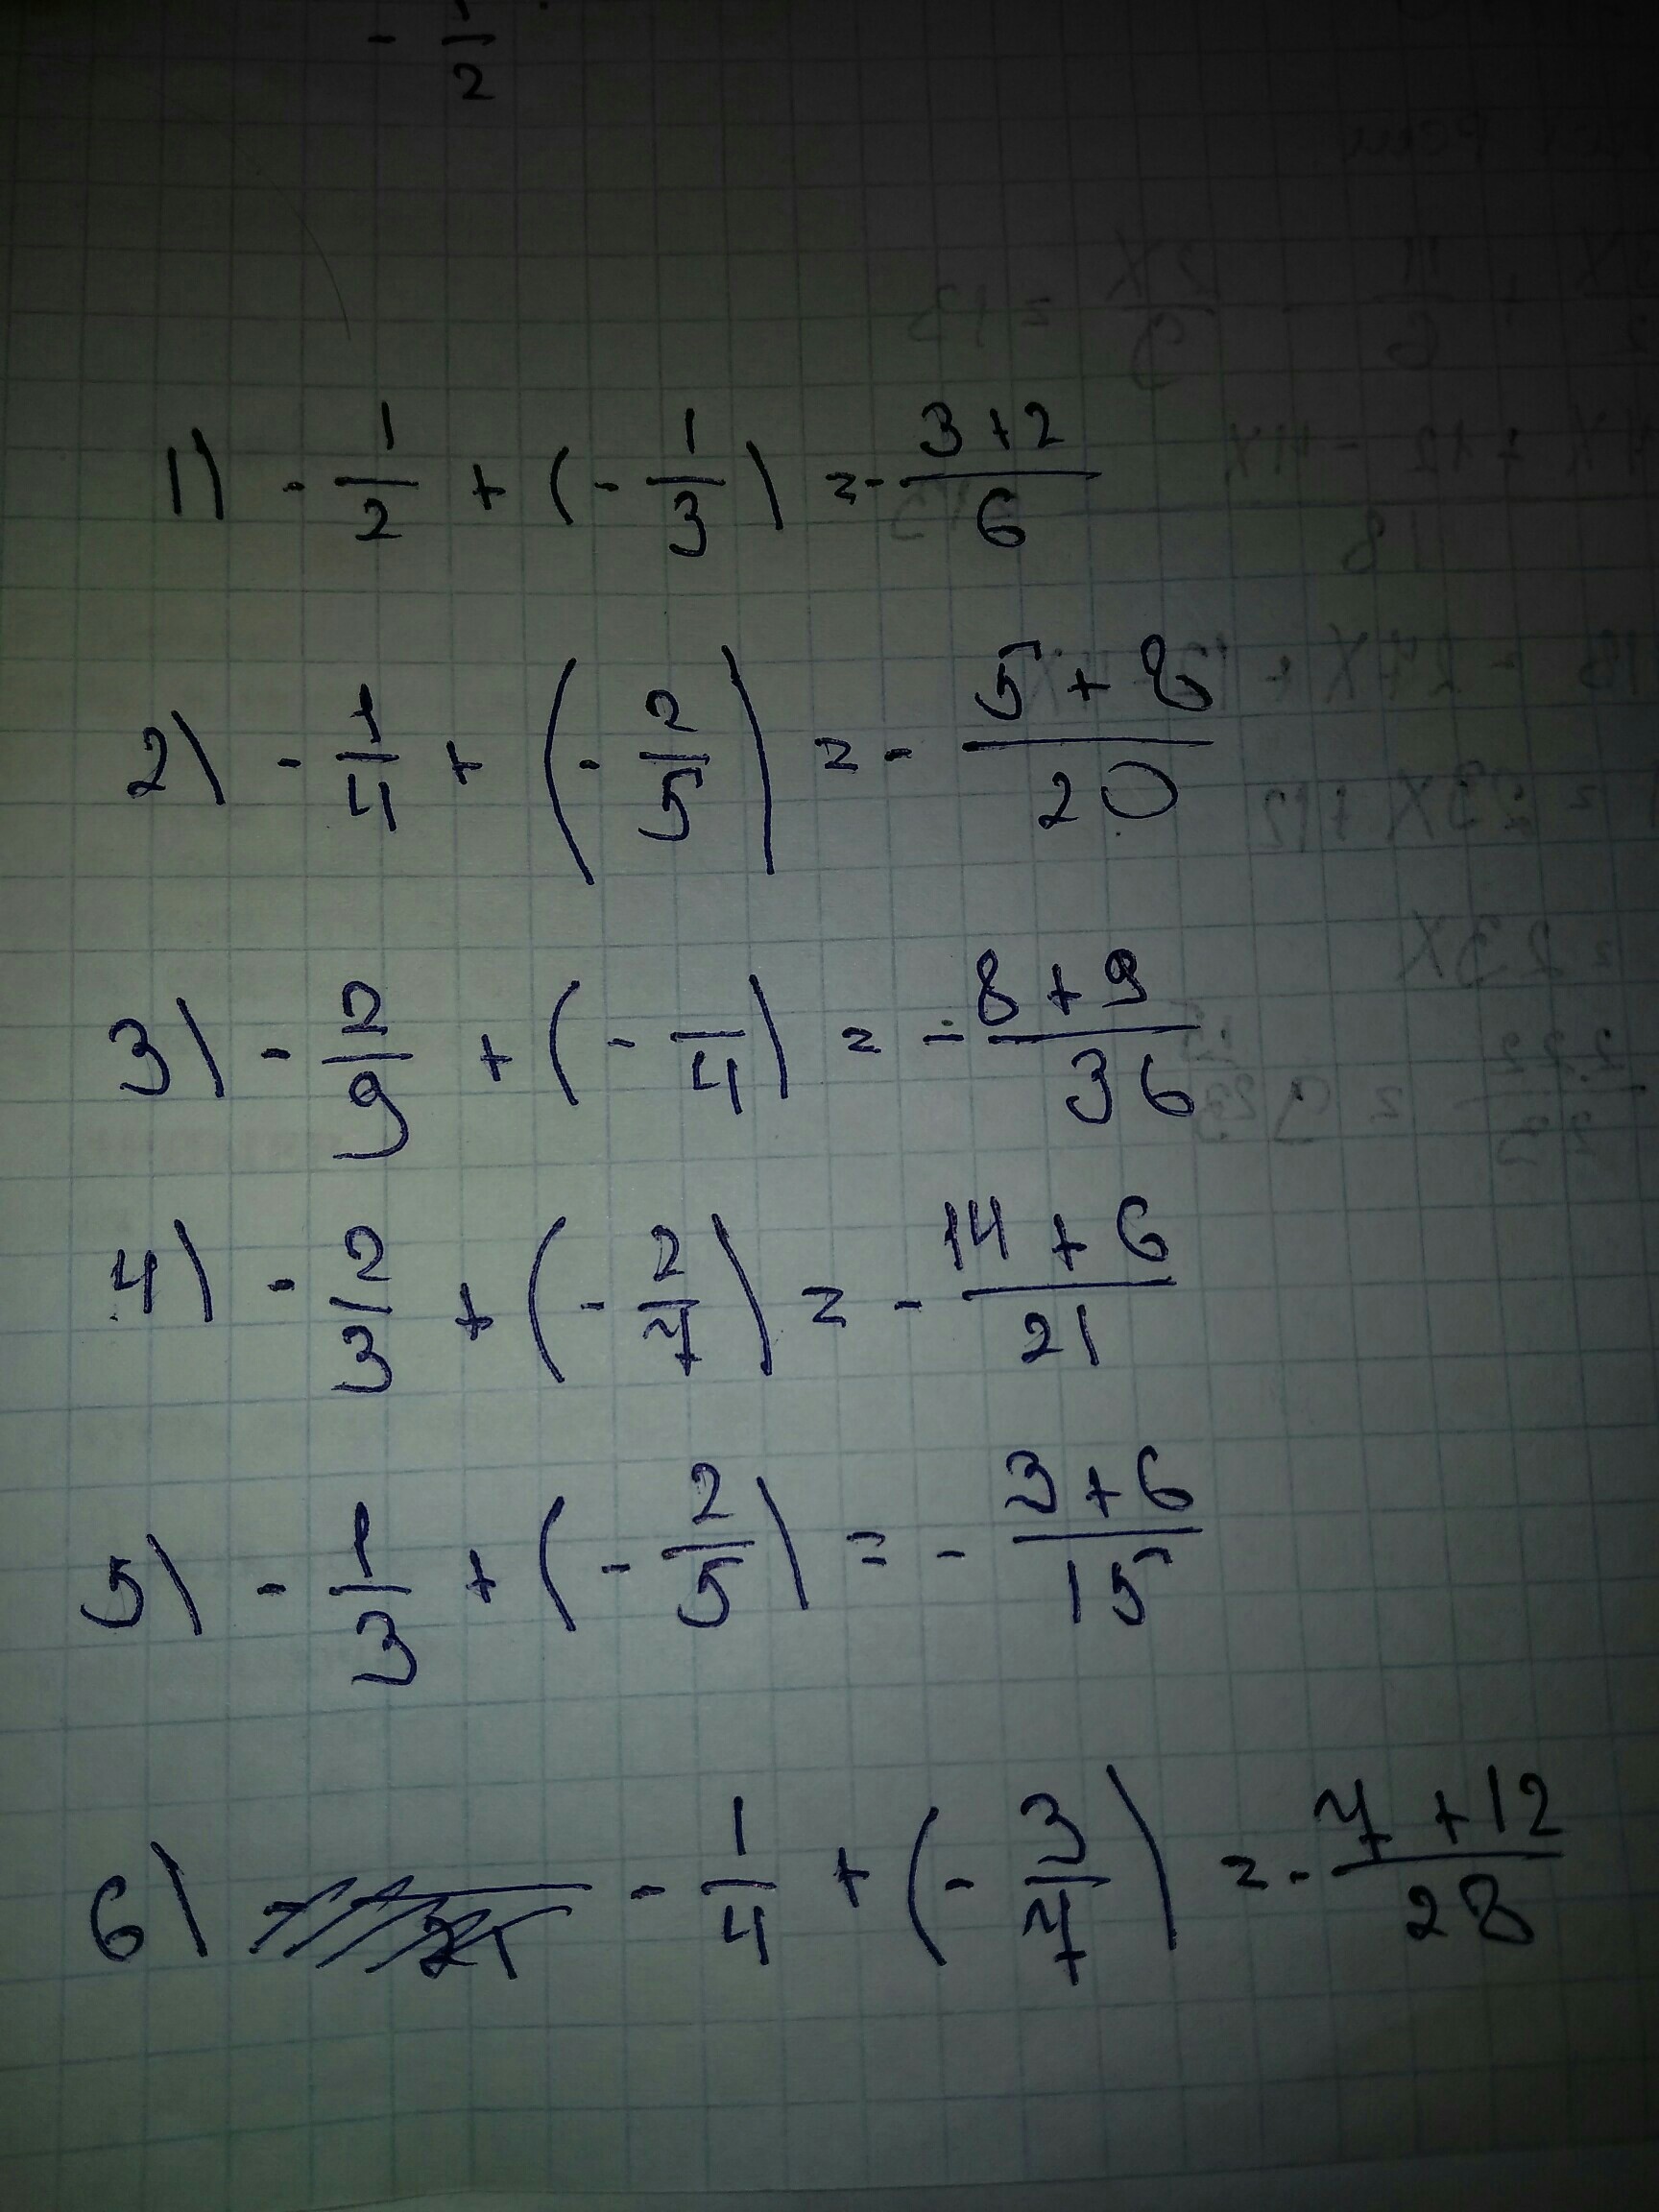 - 1/2
1) - 1/2 + (- 1/3) = - 3+2/6
2) - 1/4 + (- 2/5) = - 5+8/20
3) - 2/9 + (- /4) = - 8+9/36
4) - 2/3 + (- 2/7) = - 14+6/21
5) - 1/3 + (- 2/5) = - 3+6/15
6) - 1/4 + (- 3/7) = - 7+12/28